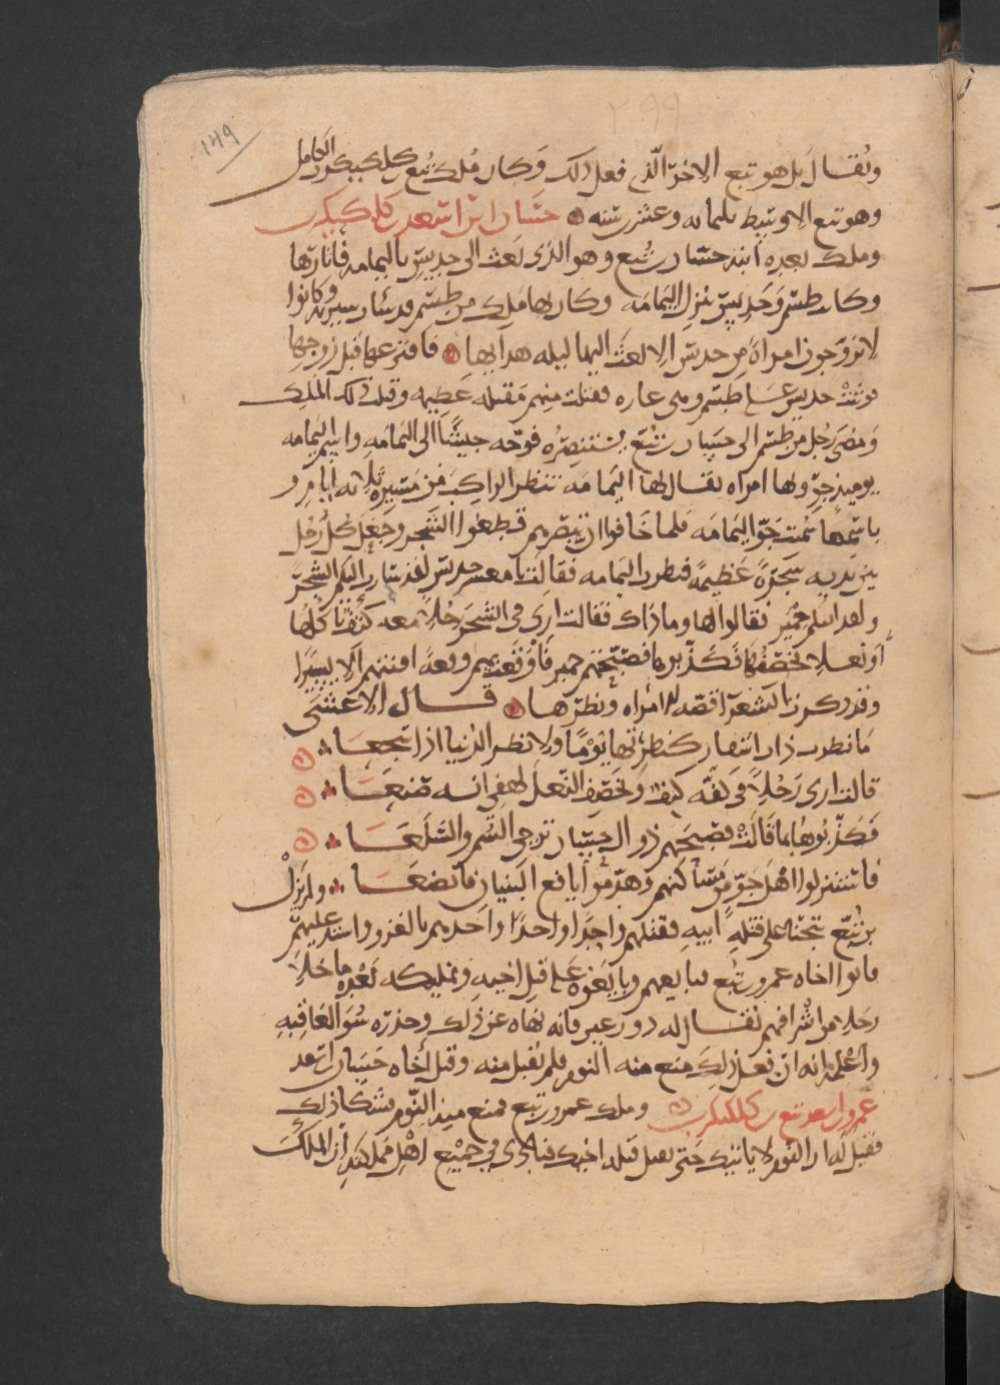 ١٤٩
ويقال بل هو تبع الاخر الذي فعل ذلك وكان ملك تبع كلكيكرب الكامل
وهو تبع الاوسط ثلثمائه وعشرين سنه حسان ابن اسعد بن كلكيكرب
وملك بعده ابنه حسان بن تبع وهو الذي بعث الى جديس باليمامه فابارها
وكان طسم وجديس تنزل اليمامه وكان لها ملك من طسم قد سار بسيره وكانوا
لا يزوجون امراة من جديس الا بعث اليها ليله هدايها فافترعها قبل زوجها
فوثبت جديس على طسم وهي غاره فقتلت منهم مقتله عظيمه وقتلت ذلك الملك
ومضى رجل من طسم الى حسان بن تبع يستنصره فوجه جيشا الى اليمامه واسم اليمامه
يوميذ جو ولها امراه يقال لها اليمامه تنظر الراكب من مسيرة ثلاثه ايام و
باسمها سميت جو اليمامه فلما خافوا ان تبصرهم قطعوا الشجر وجعل كل رجل
بين يديه شجرة عظيمة فنظرت اليمامه فقالت يا معشر جديس لقد سار اليكم الشجر
ولقد اتتكم حمير فقالوا لها وما ذاك فقالت ارى في الشجر رجلا معه كتف ياكلها
او نعلا يخصفها فكذبوها فصبحتهم حمير فاوقعت بهم وقعة افنتهم الا يسيرا
وقد ذكرت الشعرا قصه المراه ونظرها قال الاعشى
ما نظرت ذات اشفار كنظرتها يوما ولا نظر الذئبي اذا سجعا
قالت ارى رجلا في كفه كتف او يخصف النعل لهفي انه صنعا
فكذبوها بما قالت فصبحهم ذو ال حسان تزجي السم والسلعا
فاستنزلوا اهل جو من مساكنهم وهدموا يافع البنيان فاتضعا ولم يزل
بن تبع يتجنا على قتله ابيه فقتلهم واحدا واحدا واخذهم بالغزو واشتد عليهم
فاتوا اخاه عمرو بن تبع فبايعهم وبايعوه على قتل اخيه وتمليكه بعده ما خلا
رجلا من اشرافهم يقال له ذو رعين فانه نهاه عن ذلك وحذره سو العاقبه
واعلمه انه ان فعل ذلك منع منه النوم فلم يقبل منه وقتل اخاه حسان بن اسعد
عمرو بن اسعد تبع بن كلكيكرب وملك عمرو بن تبع فمنع منه النوم فشكا ذلك
فقيل له ان النوم لا ياتيك حتى تقتل قتله اخيك فنادى في جميع اهل مملكته ان الملك